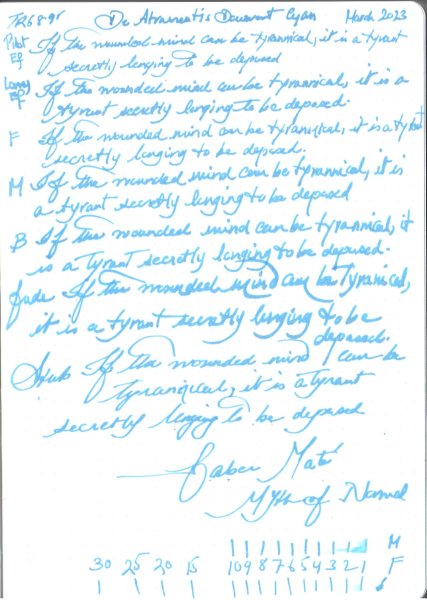 TR68gr De Atramentis Document Cyan March 2023
Pilot EF If the wounded mind can be tyrannical, it is a tyrant
secretly longing to be deposed
Lamy EF If the wounded mind can be tyrannical, it is a
tyrant secretly longing to be deposed.
F If the wounded mind can be tyrannical, it is a tyrant
secretly longing to be deposed.
M If the wounded mind can be tyrannical, it is
a tyrant secretly longing to be deposed
B If the wounded mind can be tyrannical, it
is a tyrant secretly longing to be deposed.
fude If the wounded mind can be tyrannical,
it is a tyrant secretly longing to be
deposed.
Stub If the wounded mind can be
tyrannical, it is a tyrant
secretly longing to be deposed
Gabor Maté
Myth of Normal
M
30 25 20 15 10 9 8 7 6 5 4 3 2 1 F